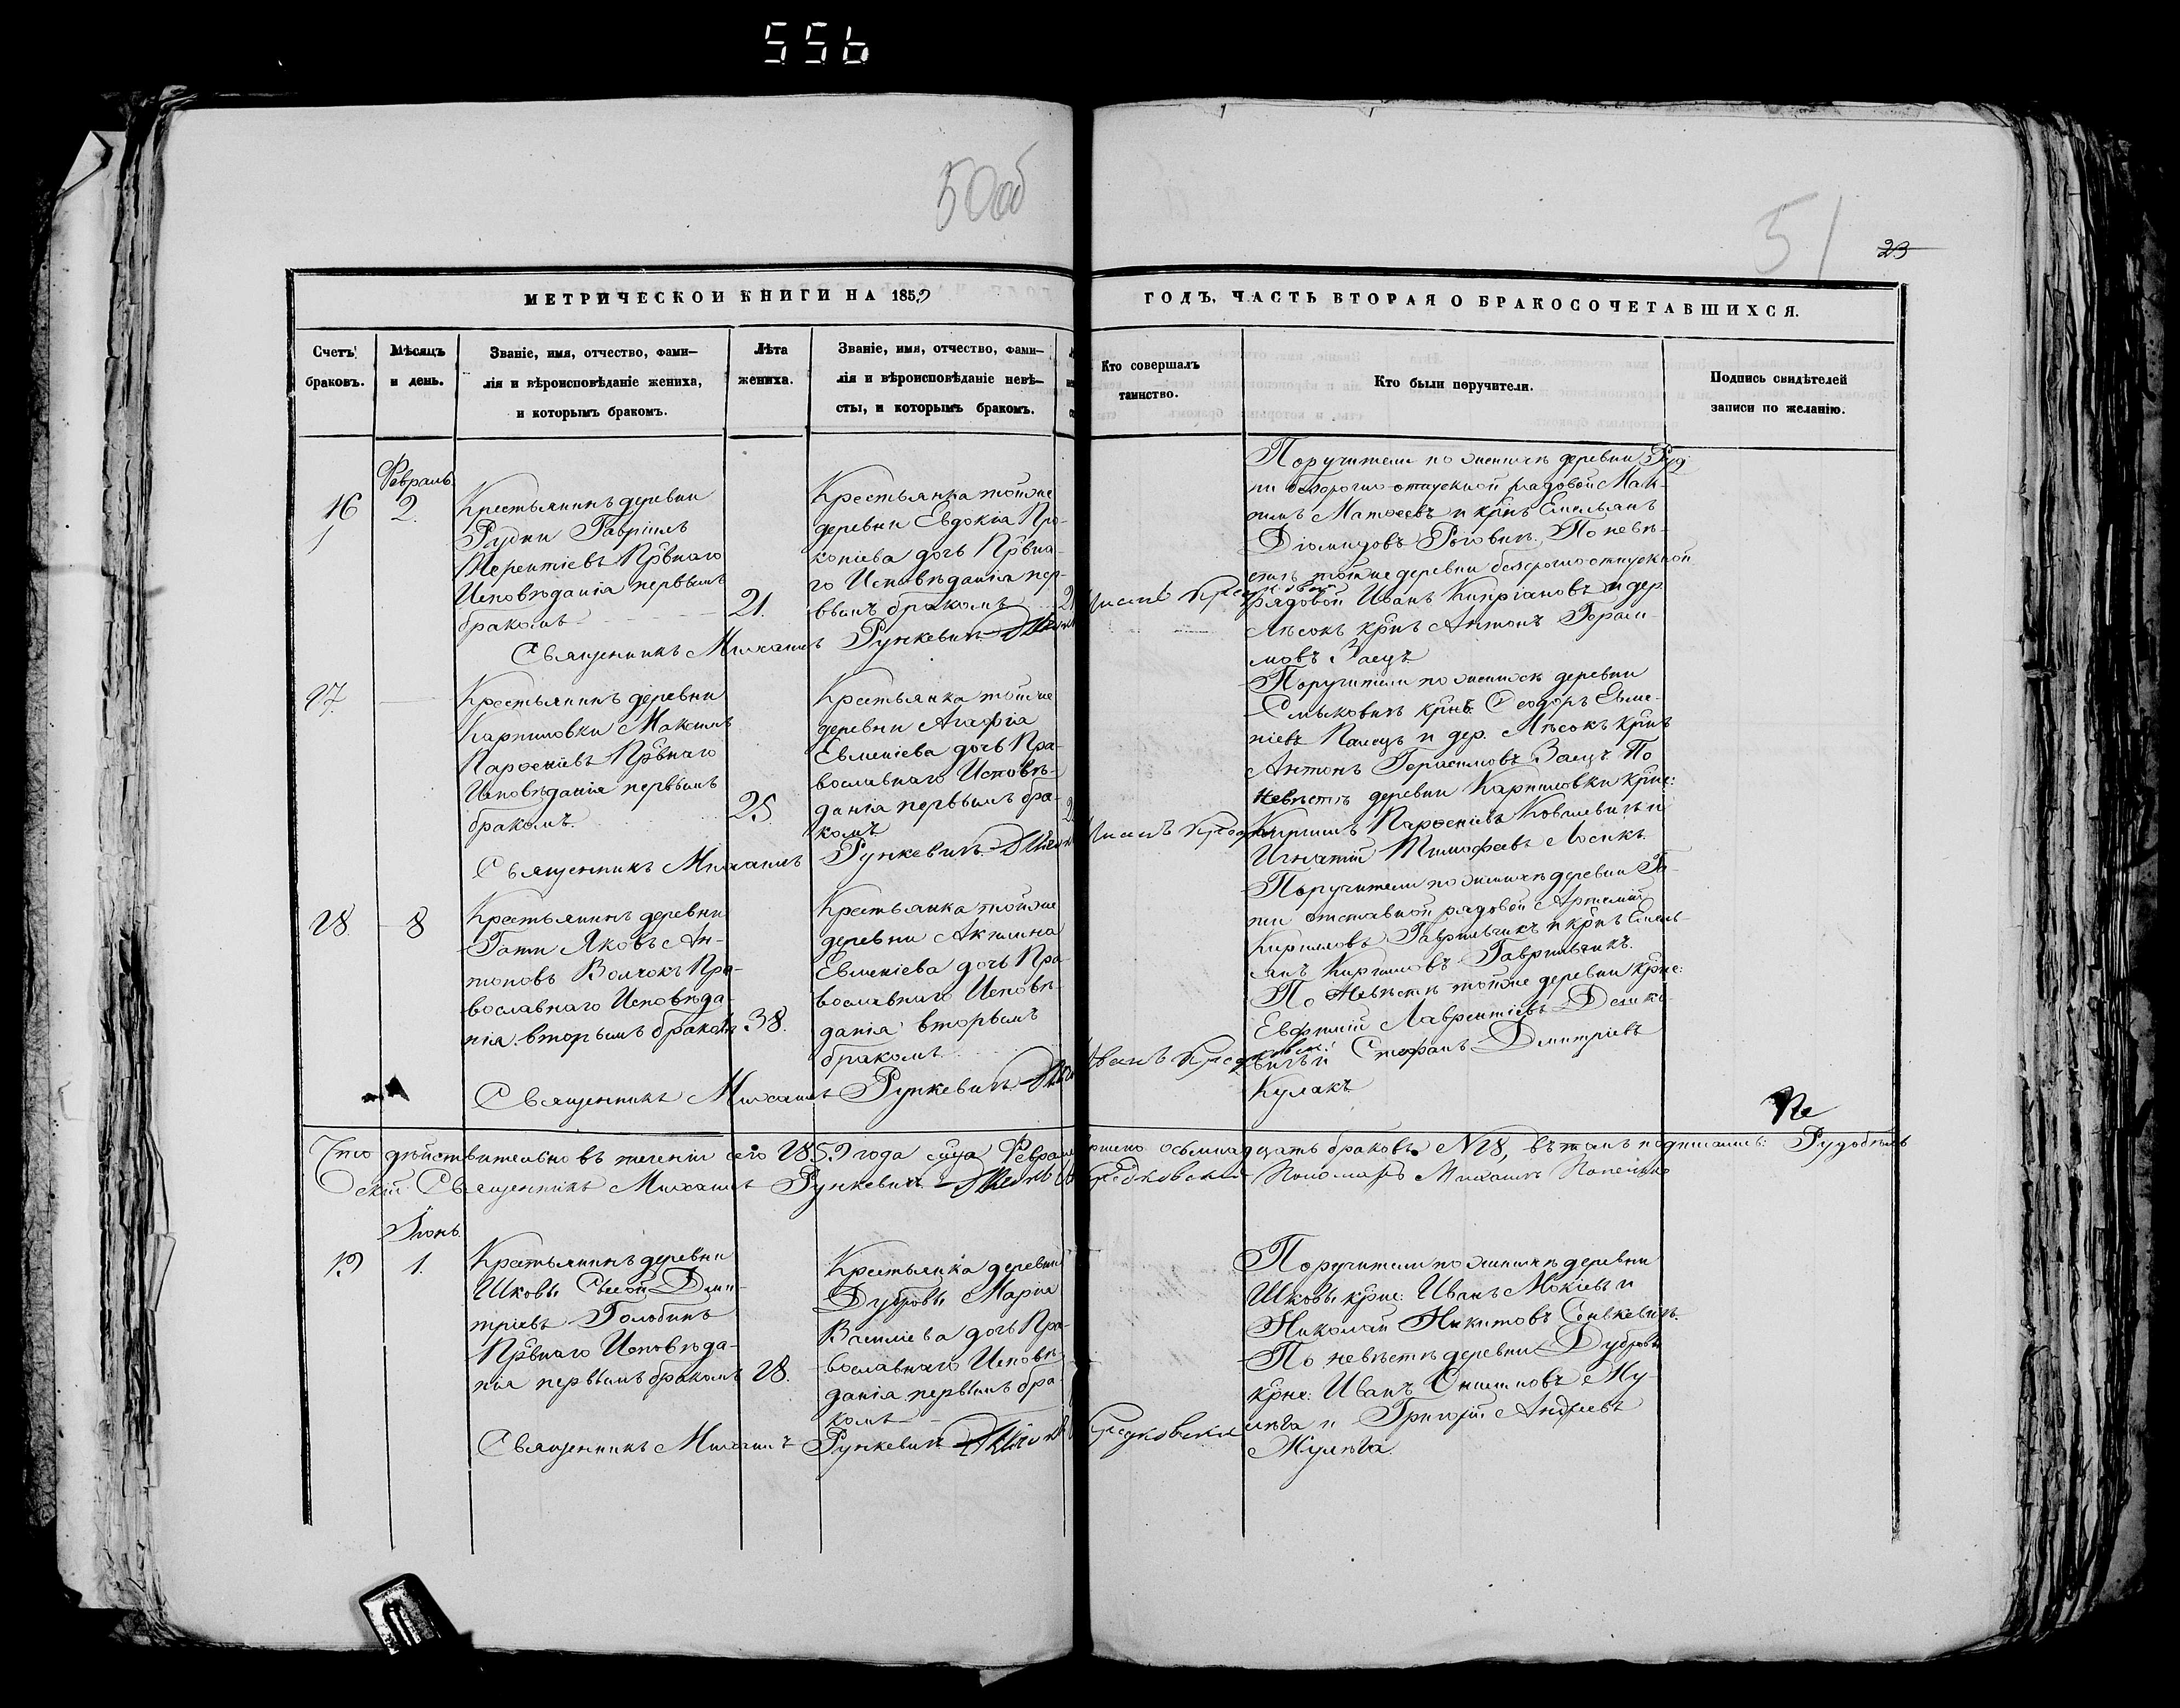 556
50об
51
23
МЕТРИЧЕСКОИ КНИГИ НА 1859
ГОДЪ, ЧАСТЬ ВТОРАЯ О БРАКОСОЧЕТАВШИХСЯ.
Счетъ
браковъ.
Мѣсяцъ
и день.
Званіе, имя, отчество, фами-
лія и вѣроисповѣданіе жениха,
и которымъ бракомъ.
Лѣта
жениха.
Званіе, имя, отчество, фами-
лія и вѣроисповѣданіе невѣ-
сты, и которымъ бракомъ.
Кто совершалъ
таинство.
Кто были поручители.
Подпись свидѣтелей
записи по желанію.
16
Февраль
2.
Крестьянинъ деревни
Рудни Гавріилъ
Терентіевъ Првнаго
Исповѣданія первымъ
бракомъ
21.
Крестьянка тойже
деревни Евдокія Про-
копіева дочь Првна-
го Исповѣданія пер-
вымъ бракомъ
Священникъ Михаилъ Рункевичъ
Поручители по женихѣ деревни Руд-
ни безсрочно отпускной рядовой Мак-
симъ Матѳеевъ и крнъ Емельянъ
Діомидовъ Роговичъ. По невѣ-
стѣ тойже деревни безсрочноотпускной
рядовой Иванъ Кипріановъ и дер.
Лѣсокъ крнъ Антонъ Гераси-
мовъ Заецъ
17.
Крестьянинъ деревни
Карпиловки Максимъ
Парѳеніевъ Првнаго
Исповѣданія первымъ
бракомъ.
25
Крестьянка тойже
деревни Агафія
Евменіева дочь Пра-
вославнаго Исповѣ-
данія первымъ бра-
комъ
Священникъ Михаилъ Рункевичъ
Поручители по женихѣ деревни
крнъ Ѳеодоръ Евме-
ніевъ Палецъ и дер. Лѣсокъ крнъ
Антонъ Герасимовъ Заецъ. По
невѣстѣ деревни Карпиловки крне:
Кириллъ Парѳеніевъ и
Игнатій Тимофеевъ Лосикъ.
18.
8
Крестьянинъ деревни
Гати Яковъ Ан-
тоновъ Волчокъ Пра-
вославнаго Исповѣда-
нія вторымъ бракомъ
38.
Крестьянка тойже
деревни Акилина
Евменіева дочь Пра-
вославнаго Исповѣ-
данія вторымъ
бракомъ
Священникъ Михаилъ Рункевичъ
Поручители по женихѣ деревни Га-
ти отставной рядовой Артемій
Кирилловъ Гаврильчикъ и крнъ Емель-
янъ Кирилловъ Гаврильчикъ.
По невѣстѣ тойже деревни крне:
Евфимій Лаврентіевъ Деике-
вичъ и Стефанъ Дмитріевъ
Кулакъ
Что дѣйствительно въ теченіи сего 1859 года мца Февраля
осьмнадцать браковъ №18, въ томъ подписались: Рудобѣль
скій Священникъ Михаилъ Рункевичъ
Пономарь Михаилъ
19
Іюнь
1.
Крестьянинъ деревни
Шковы Сѵсой Дми-
тріевъ Голобинъ
Прнаго Исповѣда-
нія первымъ бракомъ
28.
Крестьянка деревни
Дубровы Марія
Василіева дочь Пра-
вославнаго Исповѣ-
данія первымъ бра-
комъ
Священникъ Михаилъ Рункевичъ
Поручители по женихѣ деревни
Шковы крне: Иванъ Мокіевъ и
Николай Никитовъ Синкевичъ.
По невѣстѣ деревни Дубровы
крне: Иванъ Онисимовъ Жу-
лѣга и Григорій Андреевъ
Жулѣга.